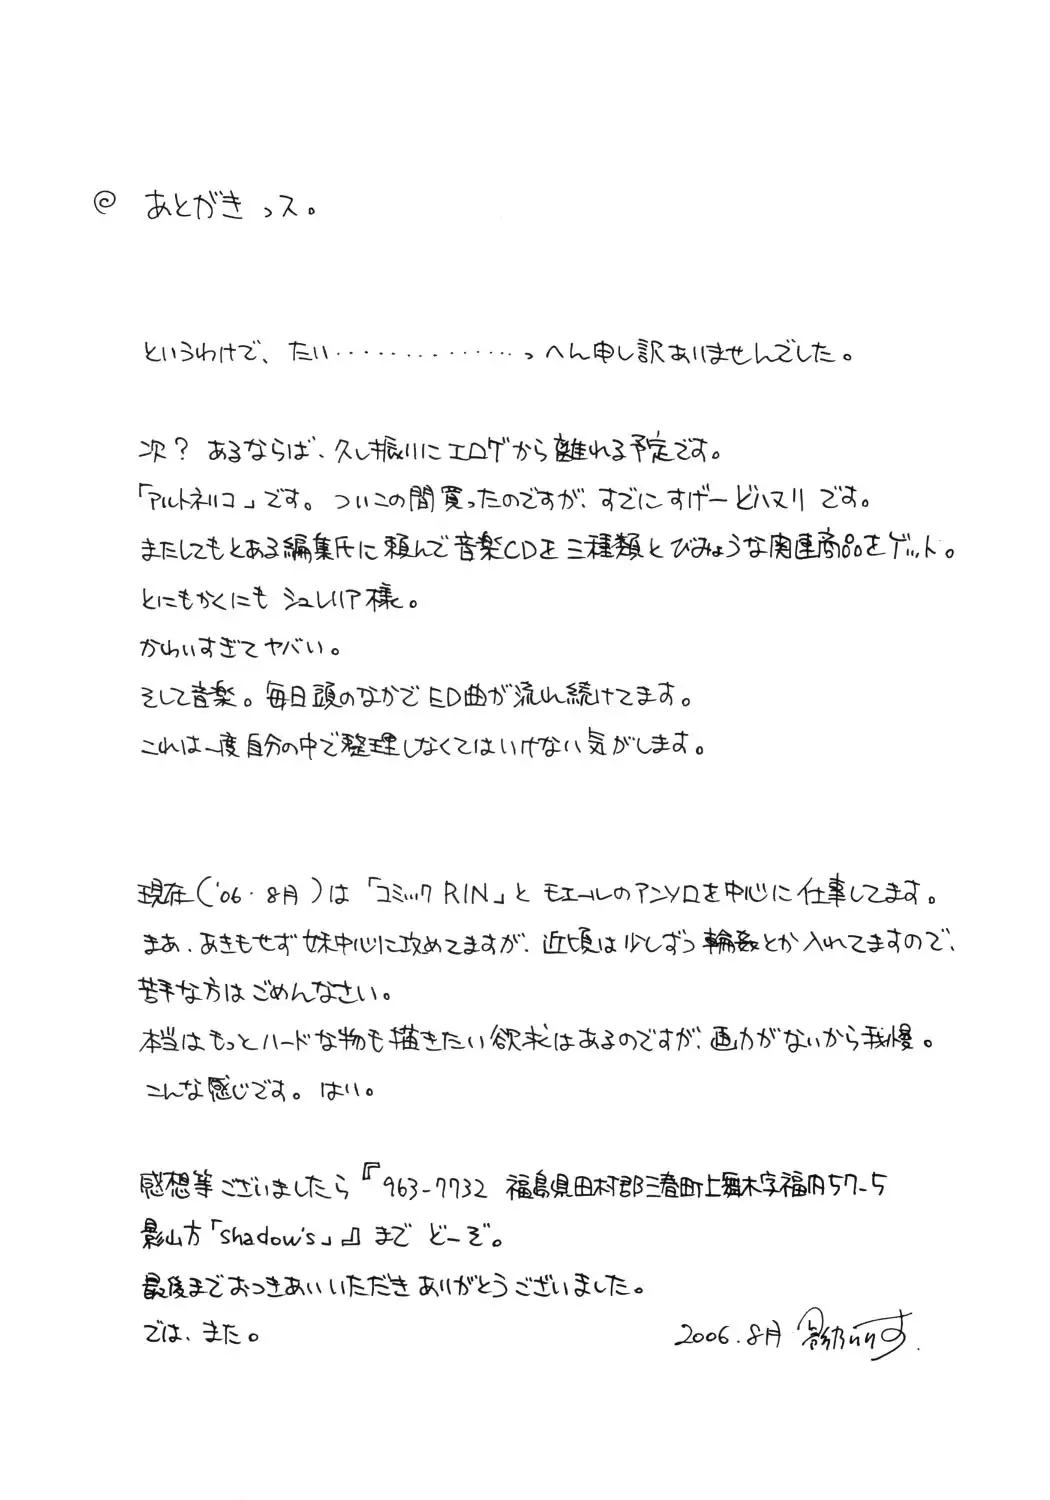 ◎ あとがきっス。
というわけで、たい・・・・・・・・・・・・・・っへん申し訳ありませんでした。
次? あるならば、久し振りにエロゲから離れる予定です。
「アルトネリコ」です。ついこの間買ったのですが、すでにすげーどハマりです。
またしてもとある編集氏に頼んで音楽CDを三種類とびみょうな関連商品をゲット。
とにもかくにもシュレリア様。
かわいすぎてヤバい。
そして音楽。毎日頭のなかでED曲が流れ続けてます。
これは一度自分の中で整理しなくてはいけない気がします。
現在('06.8月)は「コミックRIN」とモエールのアンソロを中心に仕事してます。
まあ、あきもせず妹中心に攻めてますが、近頃は少しずつ輪姦とか入れてますので、
苦手な方はごめんなさい。
本当はもっとハードな物も描きたい欲求はあるのですが、画力がないから我慢。
こんな感じです。はい。
感想等ございましたら『963-7732 福島県田村郡三春町上舞木字福内57-5
影山方「Shadow's」』までどーぞ。
最後までおつきあいいただきありがとうございました。
では、また。
2006.8月